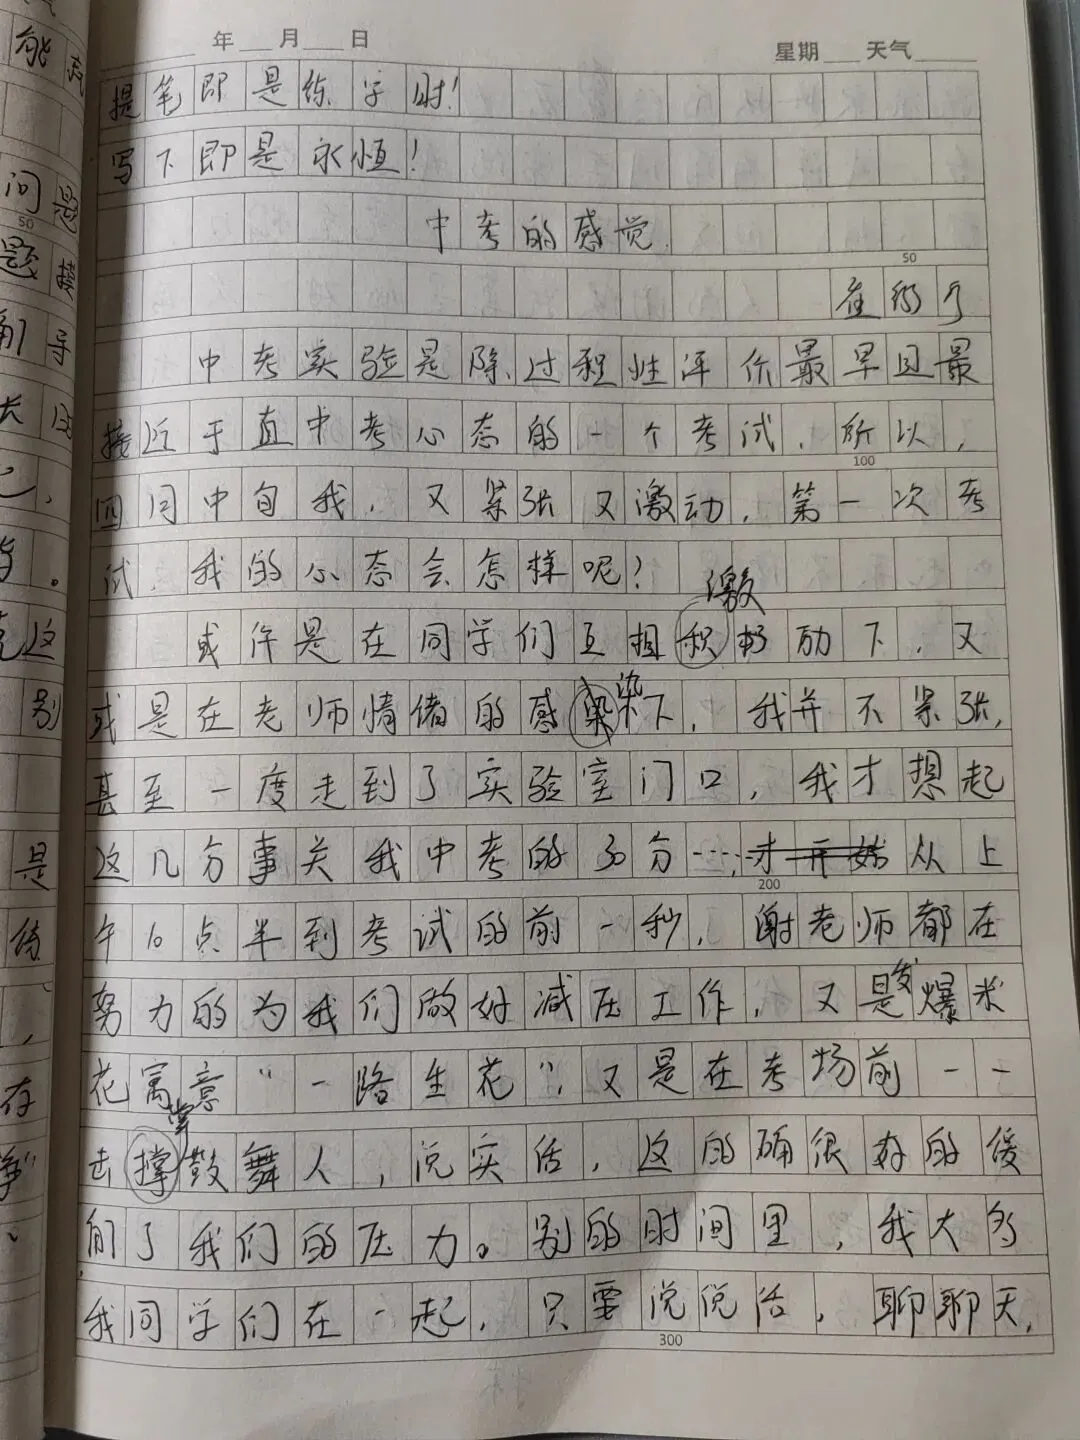 能 式
问 是
题
别 寻
长
这
别
是
___年___月___日 星期___天气_____
提笔即是练字时!
写下即是永恒!
中考的感觉
50
中考实验是除过程性评价最早且最
接近于真中考心态的一个考试,所以,
100
同中旬我,又紧张又激动,第一次考
试,我的心态会怎样呢?
激
或许是在同学们互相积极励下,又
染
或是在老师情绪的感染下,我并不紧张,
甚至一度走到了实验室门口,我才想起
这几分事关我中考的30分……才开始从上
200
午10点半到考试的前一秒,谢老师都在
努力的为我们做好减压工作,又是发爆米
花寓意“一路生花”,又是在考场前一一
掌
击撑鼓舞人,说实话,这的确很好的缓
解了我们的压力。别的时间里,我大多
我同学们在一起,只要说说话,聊聊天,
300